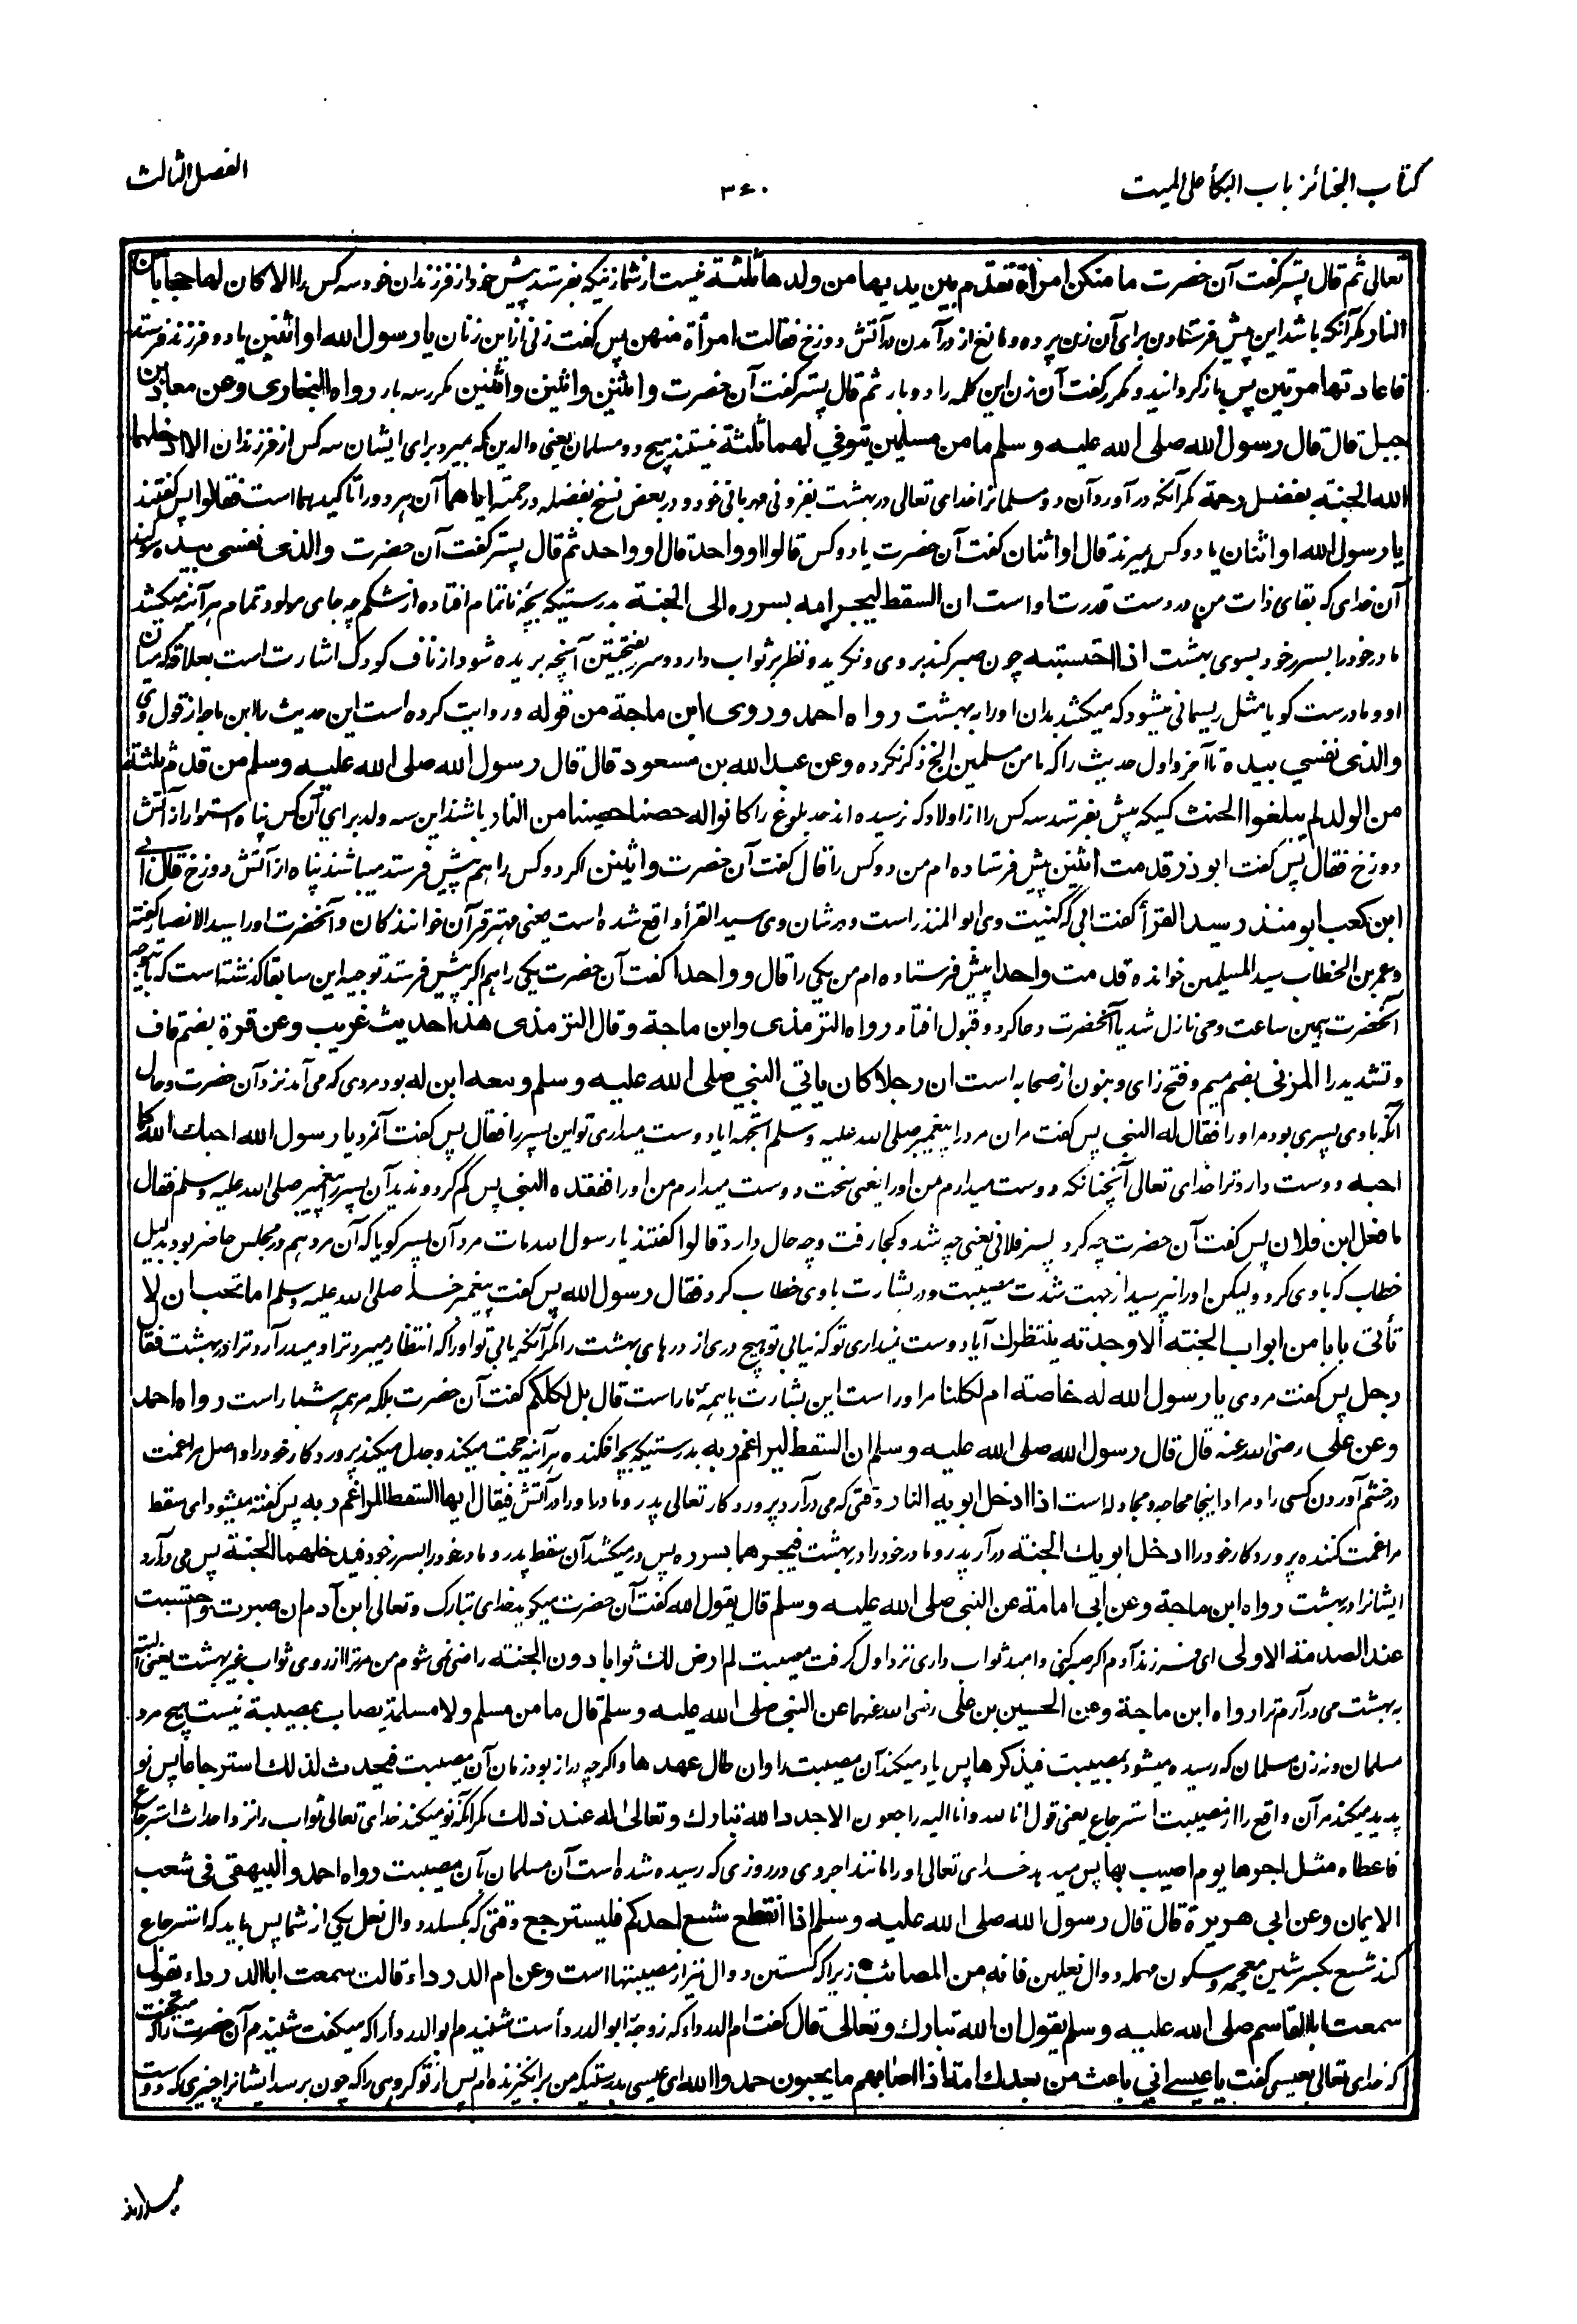 كتاب الجنائز باب البكأ على الميت
۳۶۰
الفصل الثالث
تعالى ثم قال پستر گفت آن حضرت ما منكن امرأة تقدم بين يديها من ولدها ثلثة نیست از شما زنیکه بفرستد پیش خود از فرزندان خود سه کس را الا كان لها حجابا من
النار مگر آنکه باشد این پیش فرستادن برای آن زن پرده و مانع از درآمدن در آتش دوزخ فقالت امرأة منهن پس گفت زنی از این زنان يا رسول الله او اثنين یا دو فرزند فرستد
فاعادتها مرتين پس بازگردانید و مکرر گفت آن زن این کلمه را دو بار ثم قال پستر گفت آن حضرت واثنين واثنين واثنين مکرر سه بار رواه البخارى وعن معاذ بن
جبل قال قال رسول الله صلى الله عليه وسلم ما من مسلمين يتوفى لهما ثلثة نیستند هیچ دو مسلمان یعنی والدین که بمیرد برای ایشان سه کس از فرزندان الا ادخلهما
الله الجنة بفضل رحمة مگر آنکه در آورد آن دو مسلمانرا خدای تعالی در بهشت بفزونی مهربانی خود و در بعض نسخ بفضله رحمته اياهما آن هر دو را تاکید هما است فقالوا پس گفتند
يا رسول الله او اثنان یا دو کس بمیرند قال او اثنان گفت آن حضرت یا دو کس قالوا او واحد قال او واحد ثم قال پستر گفت آن حضرت والذى نفسى بيده سوگند
آن خدای که بقای ذات من در دست قدرت اوست ان السقط ليجر امه بسرره الى الجنة بدرستیکه بچهٔ ناتمام افتاده از شکم چه جای مولود تمام هر آینه میکشد
مادر خود را بسرر خود بسوی بهشت اذا احتسبته چون صبر کند بر وی و نگرید و نظر بر ثواب دارد و سرر بفتحتین آنچه بریده شود از ناف کودک اشارت است بعلاقه که میان
او و مادرست گویا مثل ریسمانی میشود که میکشد بدان او را به بهشت رواه احمد وروى ابن ماجة من قوله و روایت کرده است این حدیث را ابن ماجه از قول وی
والذى نفسي بيده تا آخر و اول حدیث را که ما من مسلمين الخ ذکر نکرده وعن عبد الله بن مسعود قال قال رسول الله صلى الله عليه وسلم من قدم ثلثة
من الولد لم يبلغوا الحنث کسیکه پیش بفرستد سه کس را از اولاد که نرسیده اند حد بلوغ را كانوا له حصنا حصينا من النار باشند این سه ولد برای آن کس پناه استوار از آتش
دوزخ فقال پس گفت ابو ذر قدمت اثنين پیش فرستاده ام من دو کس را قال گفت آن حضرت واثنين اگر دو کس را هم پیش فرستد میباشند پناه از آتش دوزخ قال ابي
ابن كعب ابو منذر سيد القرأ گفت ابی که کنیت وی ابو المنذر است و در شان وی سید القرأ واقع شده است یعنی مهتر قرآن خوانندگان و آنحضرت او را سید الانصار گفته
و عمر بن الخطاب سید المسلمین خوانده قدمت واحدا پیش فرستاده ام من یکی را قال وواحدا گفت آن حضرت یکی را هم اگر پیش فرستد توجیه این سابقا گذشته است که بتوجه
آنحضرت همین ساعت وحی نازل شد یا آنحضرت دعا کرد و قبول افتاد رواه الترمذى وابن ماجة وقال الترمذى هذا حديث غريب وعن قرة بضم قاف
و تشدید را المزنى بضم میم و فتح زای و بنون از صحابه است ان رجلا كان ياتي النبي صلى الله عليه وسلم ومعه ابن له بود مردی که می آمد نزد آن حضرت و حال
آنکه با وی پسری بود مر او را فقال له النبى پس گفت مر آن مرد را پیغمبر صلى الله عليه وسلم اتحبه ایا دوست میداری تو این پسر را فقال پس گفت آنمرد يا رسول الله احبك الله كما
احبه دوست دارد ترا خدای تعالی آنچنانکه دوست میدارم من او را یعنی سخت دوست میدارم من او را ففقده النبى پس گم کرد و ندید آن پسر را پیغمبر صلى الله عليه وسلم فقال
ما فعل ابن فلان پس گفت آن حضرت چه کرد پسر فلانی یعنی چه شد و کجا رفت و چه حال دارد قالوا گفتند يا رسول الله مات مرد آن پسر گویا که آن مرد هم در مجلس حاضر بود بدلیل
خطاب که با وی کرد ولیکن او را نپرسید از جهت شدت مصیبت و در بشارت با وی خطاب کرد فقال رسول الله پس گفت پیغمبر خدا صلى الله عليه وسلم اما تحب ان لا
تأتى بابا من ابواب الجنة الا وجدته ينتظرك آیا دوست نمیداری تو که نیائی تو هیچ دری از درهای بهشت را مگر آنکه یابی تو او را که انتظار میبرد ترا و میدرآرد ترا در بهشت فقال
رجل پس گفت مردی يا رسول الله له خاصة ام لكلنا مر او راست این بشارت یا همهٔ ما راست قال بل لكلكم گفت آن حضرت بلکه مر همه شما راست رواه احمد
وعن على رضى الله عنه قال قال رسول الله صلى الله عليه وسلم ان السقط ليراغم ربه بدرستیکه بچه افکنده هر آینه حجت میکند و جدل میکند پرورد کار خود را و اصل مراغمت
در خشم آوردن کسی را و مراد اینجا محاجه و مجادله است اذا ادخل ابويه النار وقتی که می درآرد پروردکار تعالی پدر و مادر او را در آتش فيقال ايها السقط المراغم ربه پس گفته میشود ای سقط
مراغمت کننده پروردکار خود را ادخل ابويك الجنة درآر پدر و مادر خود را در بهشت فيجرهما بسرره پس در میکشد آن سقط پدر و مادر خود را بسرر خود فيدخلهما الجنة پس می درآرد
ایشانرا در بهشت رواه ابن ماجة وعن ابى امامة عن النبى صلى الله عليه وسلم قال يقول الله گفت آن حضرت میگوید خدای تبارک و تعالی ابن آدم ان صبرت واحتسبت
عند الصدمة الاولى ای فرزند آدم اگر صبر کنی و امید ثواب داری نزد اول گرفت مصیبت لم ارض لك ثوابا دون الجنة راضی نمی شوم من مر ترا از روی ثواب غیر بهشت یعنی البته
به بهشت می درآرم ترا رواه ابن ماجة وعن الحسين بن على رضى الله عنهما عن النبى صلى الله عليه وسلم قال ما من مسلم ولا مسلمة يصاب بمصيبة نیست هیچ مرد
مسلمان و نه زن مسلمان که رسیده میشود بمصیبت فيذكرها پس یاد میکند آن مصیبت را وان طال عهدها و اگرچه دراز بود زمان آن مصیبت فيحدث لذلك استرجاعا پس نو
پدید میکند مر آن واقع را از مصیبت استرجاع یعنی قول انا لله وانا اليه راجعون الا جدد الله تبارك وتعالى له عند ذلك مگر آنکه نو میکند خدای تعالی ثواب را نزد احداث استرجاع
فاعطاه مثل اجرها يوم اصيب بها پس میدهد خدای تعالی او را مانند اجر وی در روزی که رسیده شده است آن مسلمان بآن مصیبت رواه احمد والبيهقى فى شعب
الايمان وعن ابى هريرة قال قال رسول الله صلى الله عليه وسلم اذا انقطع شسع احدكم فليسترجع وقتی که بگسلد دوال نعل یکی از شما پس باید که استرجاع
کند شسع بکسر شین معجمه و سکون مهمله دوال نعلین فانه من المصائب زیرا که گسستن دوال نیز از مصیبتها است وعن ام الدرداء قالت سمعت ابا الدرداء يقول
سمعت ابا القاسم صلى الله عليه وسلم يقول ان الله تبارك وتعالى قال گفت ام الدرداء که زوجهٔ ابو الدردأ است شنیدم ابو الدردأ را که میگفت شنیدم آن حضرت را که میگفت
که خدای تعالی بعیسی گفت يا عيسى اني باعث من بعدك امة اذا اصابهم ما يحبون حمدوا الله ای عیسی بدرستیکه من برانگیزنده ام پس از تو گروهی را که چون برسد ایشانرا چیزی که دوست
میدارند